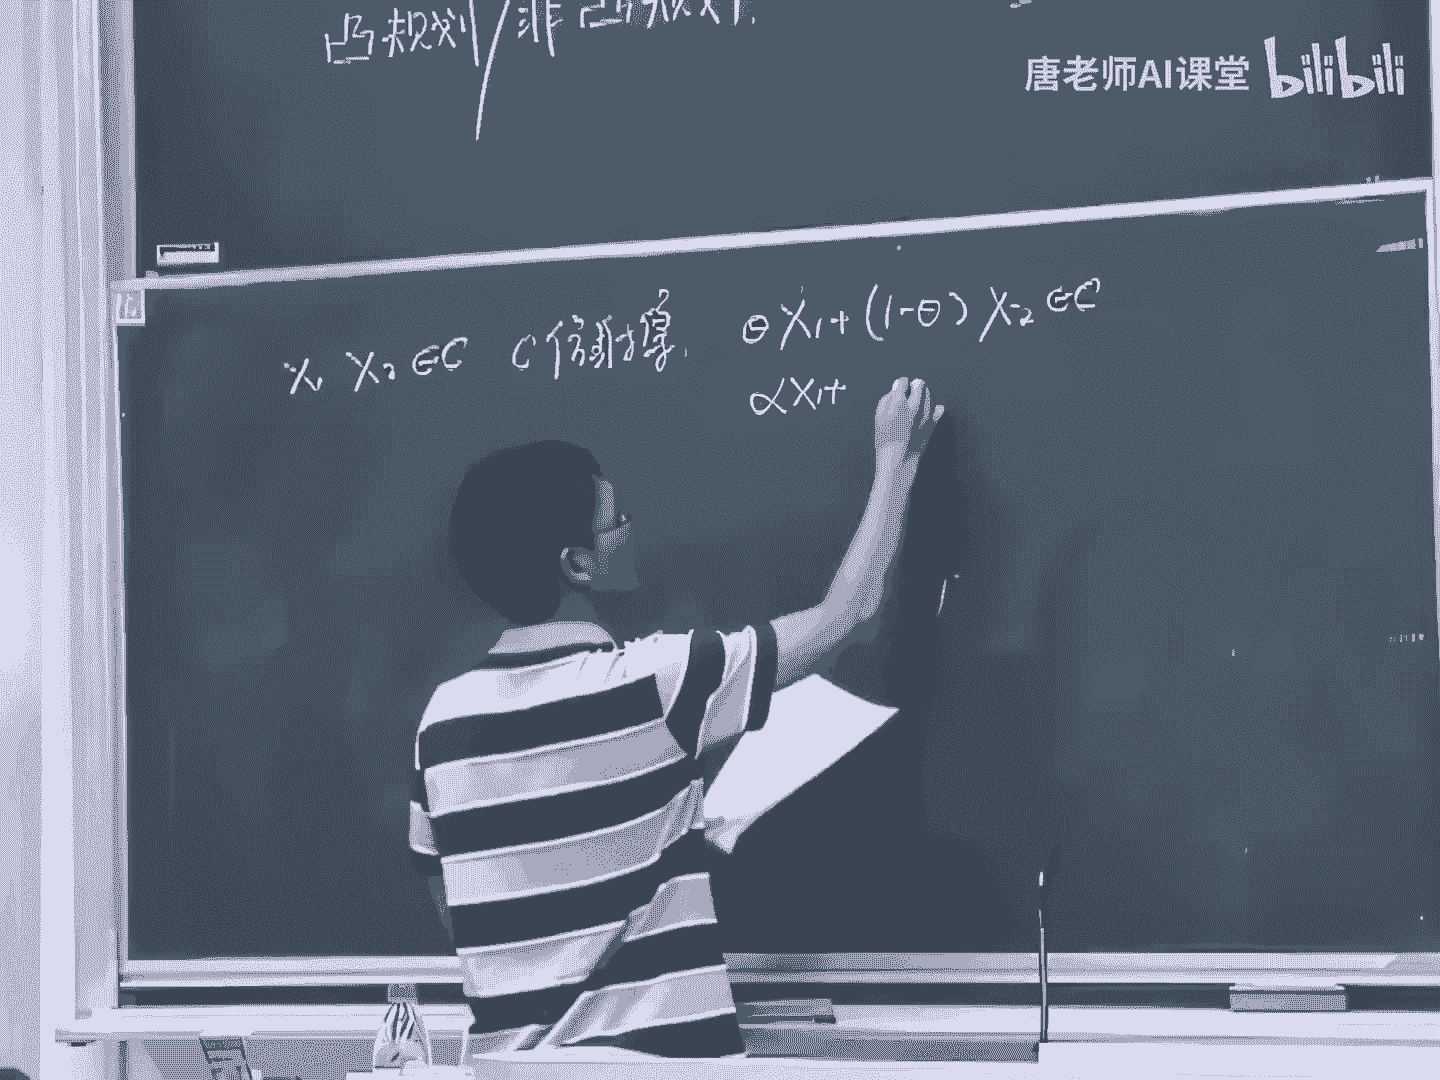 凸规划/非凸规划.
唐老师AI课堂 bilibili
X₁ X₂ ∈C C仿射集. θX₁+(1-θ)X₂∈C
αX₁+